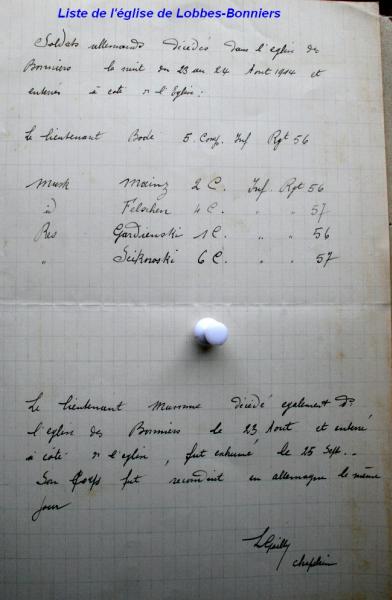 Liste de l'église de Lobbes-Bonniers
Soldats allemands décédés dans l'église de
Bonniers la nuit du 23 au 24 Aout 1914 et
enterrés à côté de l'Eglise :
Le lieutenant Bode 5. Comp. Inf Rgt 56
Musk Mainz 2 C. Inf. Rgt 56
id Felschen 4 C. " " 57
Res Gardienski 1 C. " " 56
" Seikowski 6 C. " 57
Le lieutenant décédé également ds
l'eglise des Bonniers le 23 Aout et enterré
à côté de l'eglise, fut exhumé le 25 Sept..
Son Corps fut reconduit en allemagne le même
jour